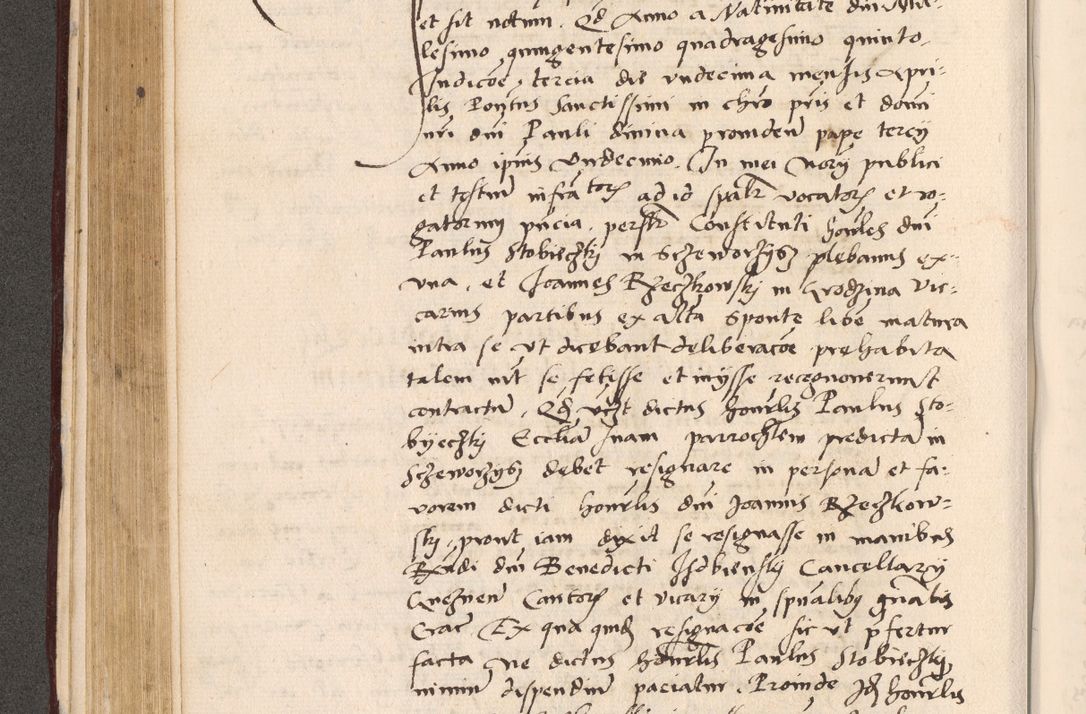 et sit notum. Qd Anno a Natiuitate dni Mil-
lesimo quingentesimo quadragesimo quinto.
Indicoe tercia die vndecima mensis Apri-
lis Pontus Sanctissimi in chro pris et domi
nri dni Pauli diuina prouiden pape tercij
Anno ipius vndecimo. In mei Norij publici
et testium infra torz ad id spalr vocatorz et ro-
gatorum pncia. persfr Constituti honrles dni
Paulus Stobieczki in Sczeworzysz plebanus ex-
vna, et Joannes Rzeczkowski in Grodzina Vic-
carius partibus ex alta sponte libe matura
intra se vt dicebant deliberacoe prehabita
talem int se fecisse et inysse recognouerunt
contractu. Qd vczt dictus honrlis Paulus Sto-
byeczki Eccliam suam parrochlem predicta in
Sczeworzysz debet resignare in persona et fa-
uorem dicti honrlis dni Joannis Rzeczkow-
ski, prout iam dyxit se resignasse in manibus
Rndi dni Benedicti Isdbienski Cancellarij
Gneznen Cantorz et vicarij in spualibus gnalis
Crac. Ex qua quid resignacoe sic vt pfertur
facta Ne dictus honrlis Paulus Stobieczki
nimium dispendium paciatur. Proinde Id honrlis